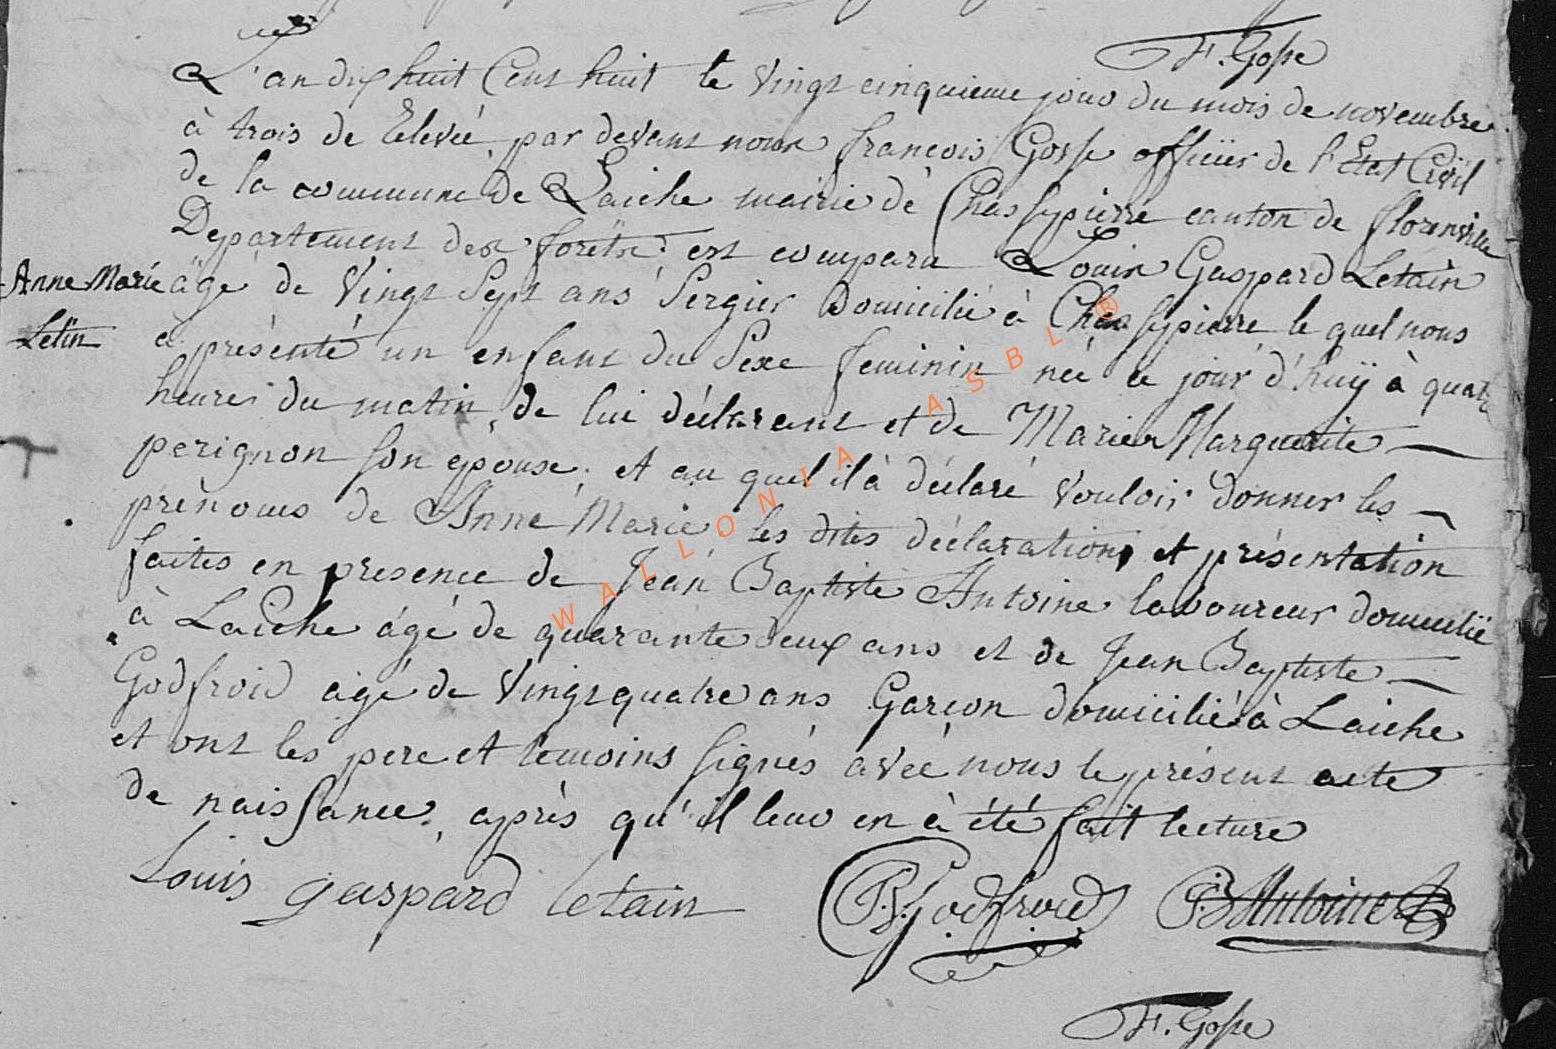 F. Gosse
L'an dix huit Cent huit le Vingt cinquieme jour du mois de novembre
à trois de Relevée par devant nous françois Gosse officier de l'Etat Civil
de la commune de Laiche mairie de Chassypierre canton de florenville
Departement des forêts est comparu Louis Gaspard Letain
Anne Marie
Letin
âgé de Vingt Sept ans Sergier Domicilié à Chassypierre le quel nous
à présenté un enfant du Sexe feminin née ce jour d'huÿ à quatre
heures du matin, de lui déclarant et de Marie Marguerite
perignon son epouse, et au quel il à déclaré Vouloir donner les
prénoms de Anne Marie les dites déclarations et présentation
faites en presence de Jean Baptiste Antoine laboureur domicilié
à Laiche âgé de quarante deux ans et de Jean Baptiste
Godfroid agé de Vingt quatre ans Garçon domicilié à Laiche
et ont les pere et temoins signés avec nous le présent acte
de naissance, après qu'il leur en à été fait lecture
Louis gaspard letain
Godfroid
Antoine
F. Gosse
WALLONIA ASBL ®